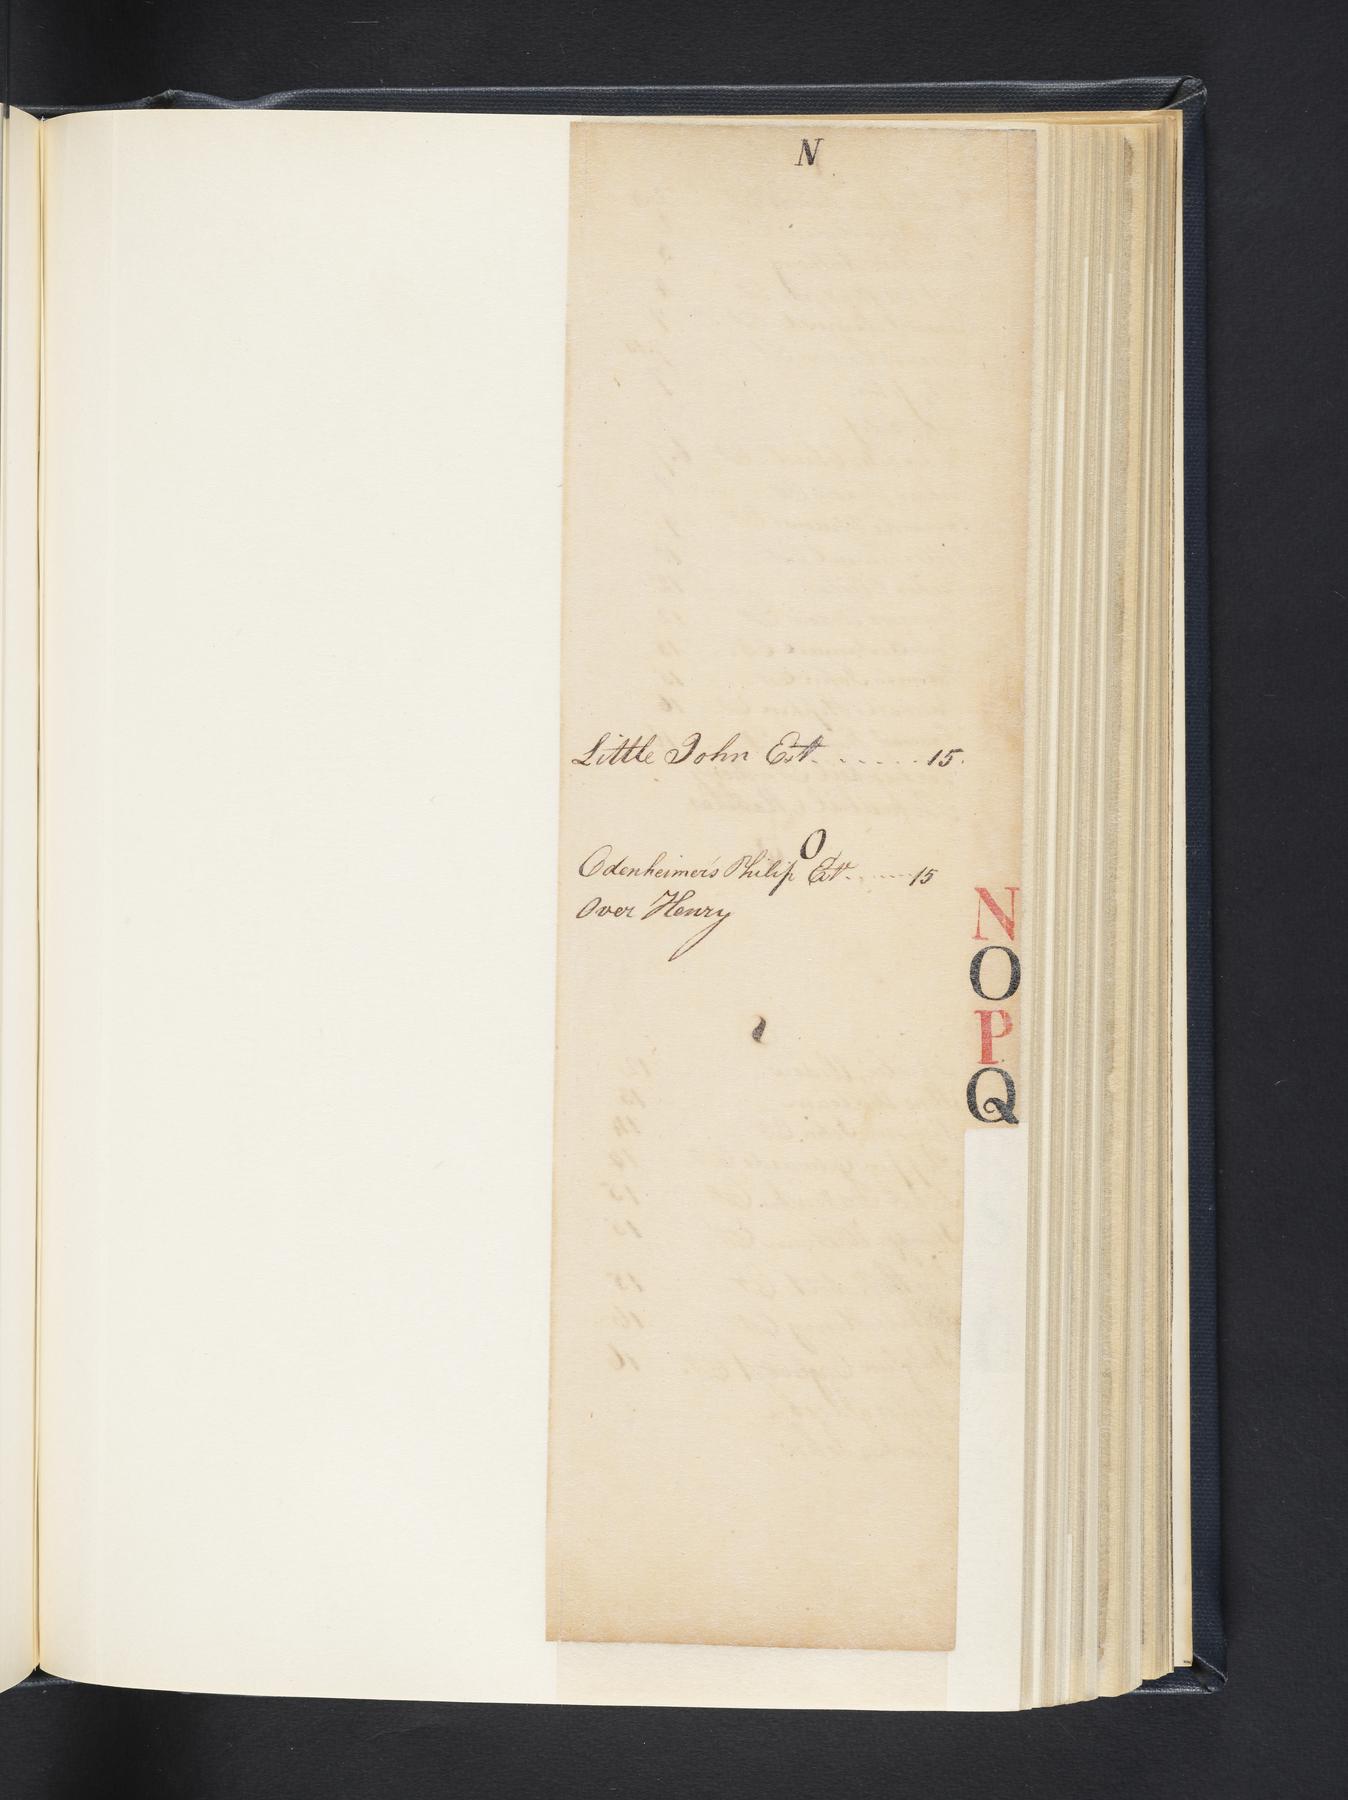 N
Little John Est. . . . . . . 15.
O
Odenheimer's Philip Est. . . . . . 15
Over Henry
N
O
P
Q